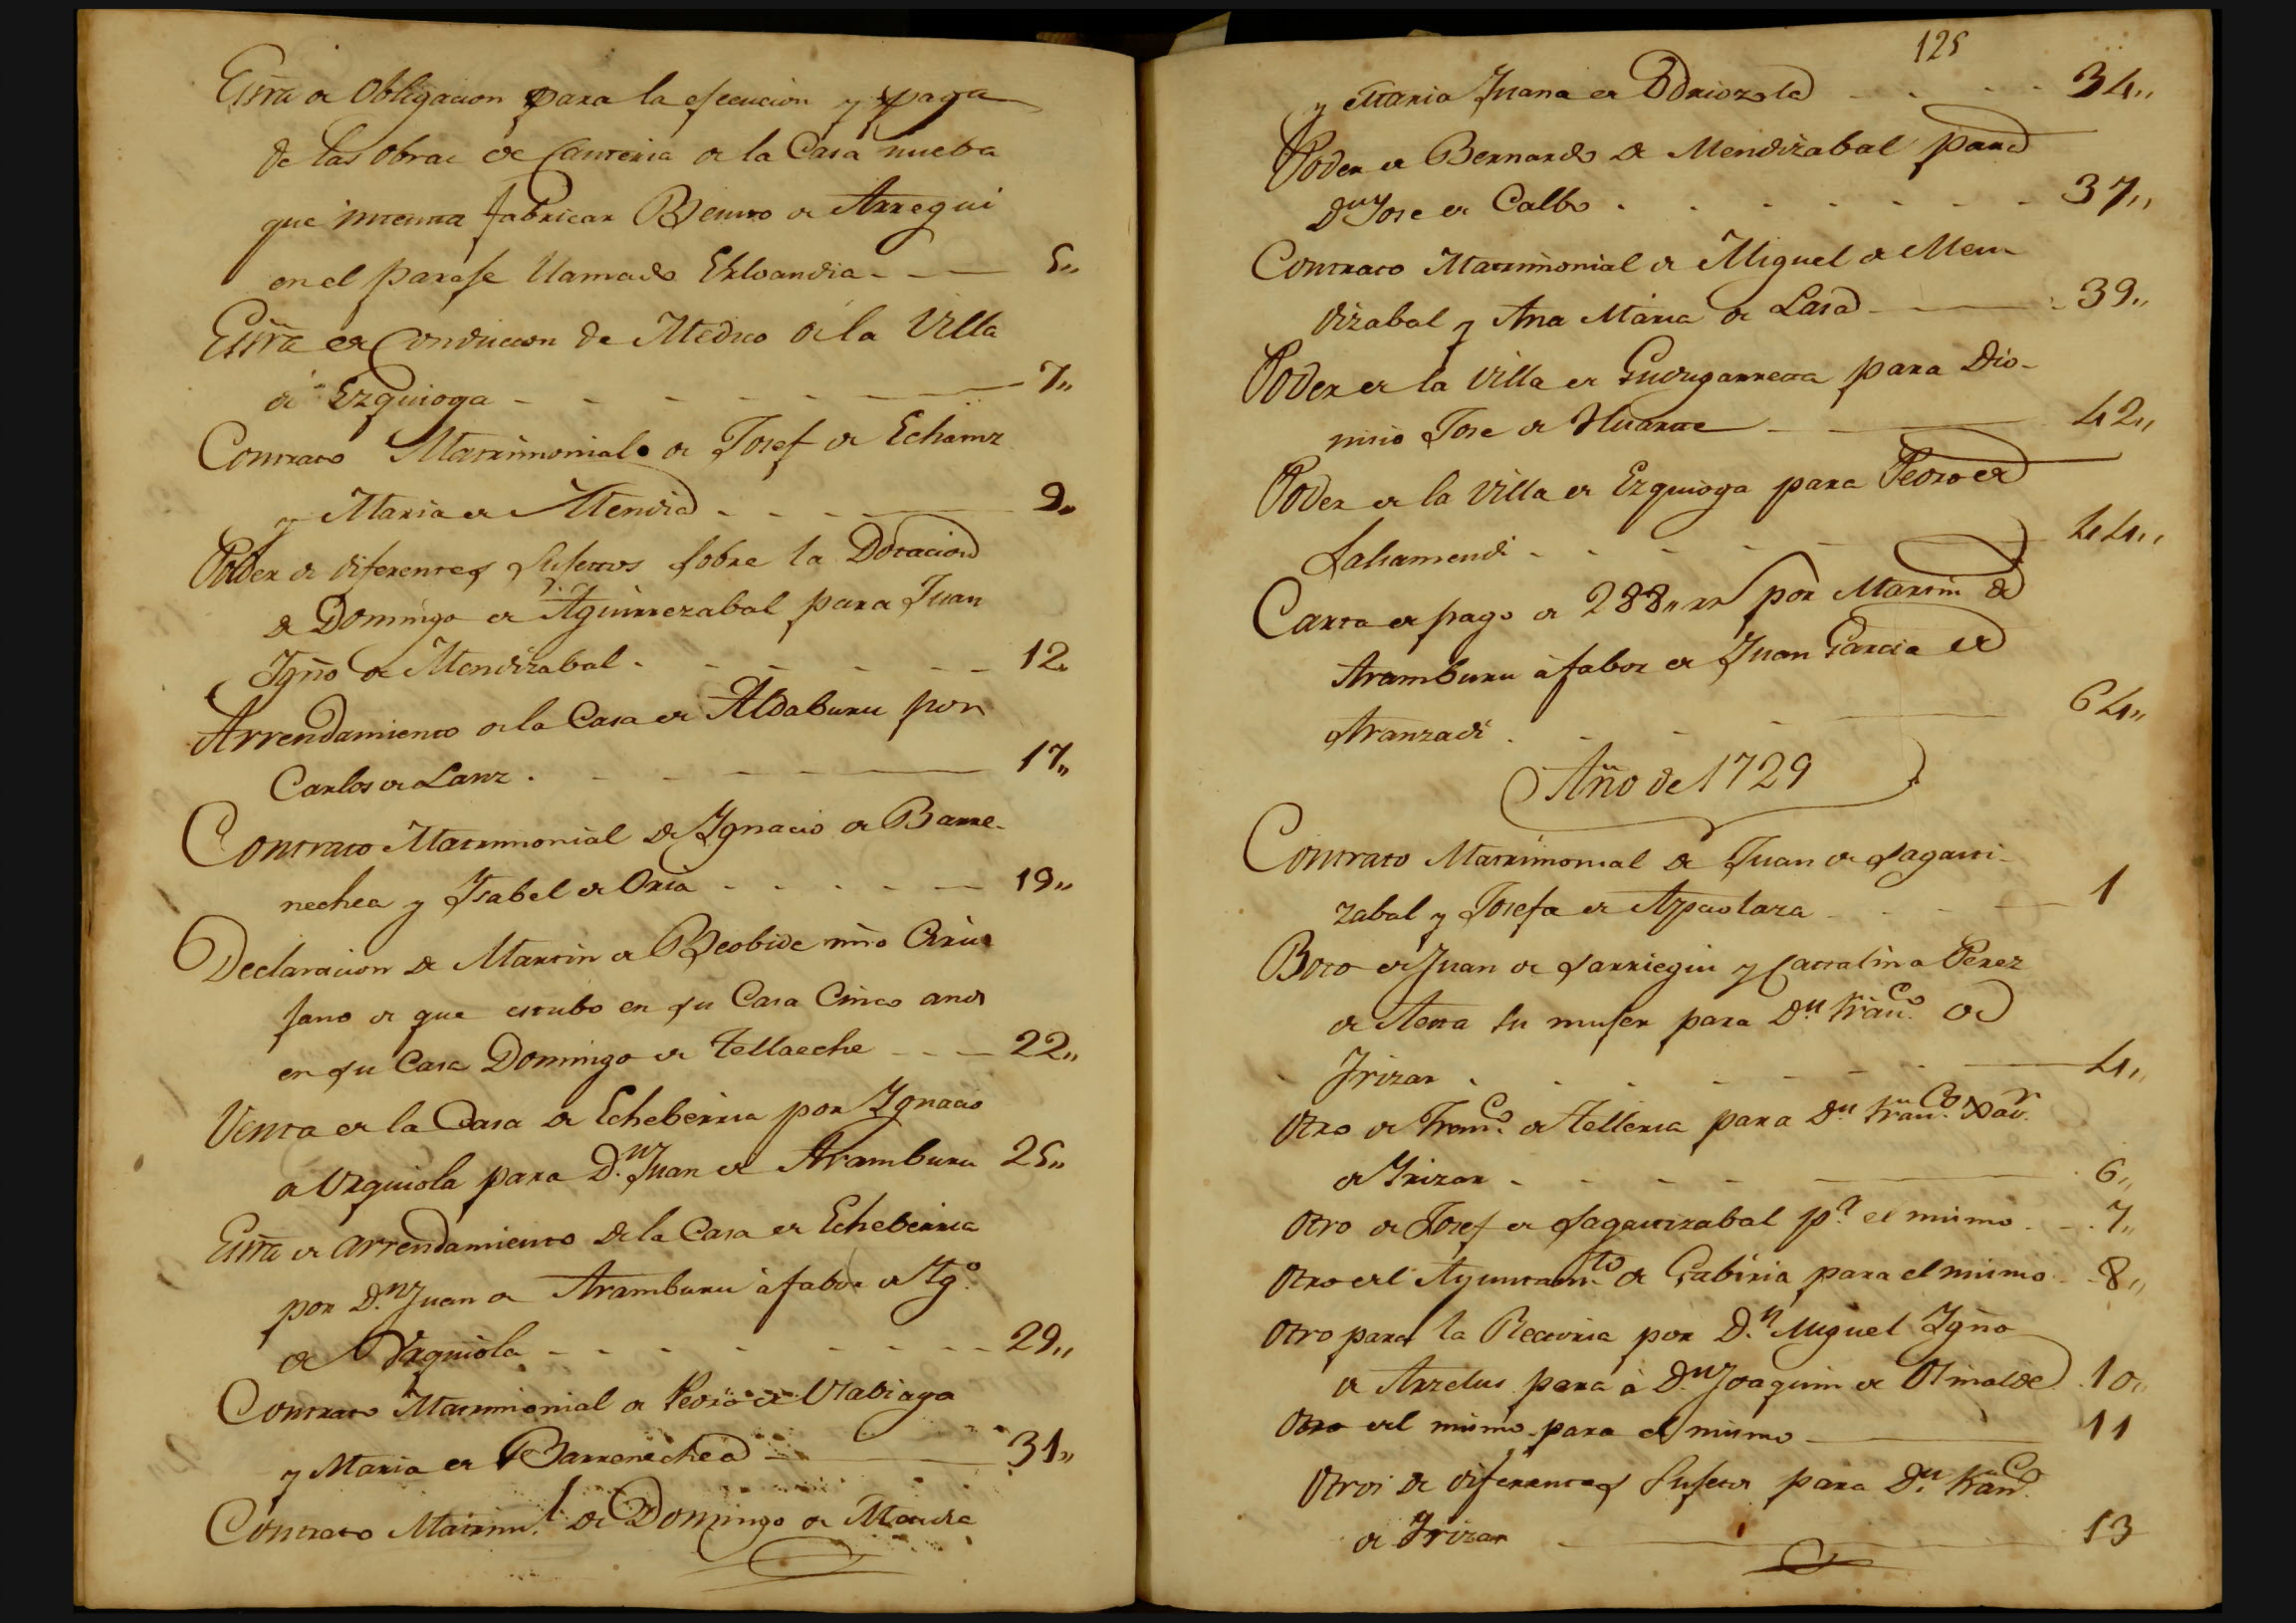 Essra de Obligacion para la ejecucion y paga
de las obras de Canteria de la Casa nueba
que intenta fabricar Benito de Arregui
en el paraje llamado Ekloandia 5,,
Essra de Conduccion de Medico de la Villa
de Ezquioga 7,,
Contrato Matrimonial de Josef de Echaniz
y Maria de Mendia 9,,
Poder de diferentes sujetos sobre la Dotacion
de Domingo de Aguirrezabal para Juan
Igño de Mendizabal 12,,
Arrendamiento de la Casa de Aldaburu por
Carlos de Lanz 17,,
Contrato Matrimonial de Ygnacio de Barre-
nechea y Ysabel de Oria 19,,
Declaracion de Martin de Beobide mño Ciru
jano de que estubo en su Casa Cinco años
en su Casa Domingo de Tellaeche 22,,
Venta de la Casa de Echeberria por Ygnacio
de Urquiola para D.n Juan de Aramburu 25,,
Essra de arrendamiento de la Casa de Echeberria
por D.n Juan de Aramburu à fabor de Yg.o
de Urquiola 29,,
Contrato Matrimonial de Pedro de Urabiaga
y Maria de Barrenechea 31,,
Contrato Matrim.l de Domingo de Mendia
125
y Maria Juana de Odriozola 34,,
Poder de Bernardo de Mendizabal para
Dn Jose de Calbo 37,,
Contrato Matrimonial de Miguel de Men
dizabal y Ana Maria de Lasa 39,,
Poder de la Villa de Gudugarreta para Dio-
nisio Jose de Huarte 42,,
Poder de la Villa de Ezquioga para Pedro de
Salsamendi 44,,
Carta de pago de 288,, rs por Martin de
Aramburu à fabor de Juan Garcia de
Aranzadi 64,,
Año de 1729
Contrato Matrimonial de Juan de Sagasti-
zabal y Josefa de Azpiolaza 1
Boto de Juan de Sarriegui y Catalina Perez
de Atea su mujer para D.n Fran.co de
Yrizar 4,,
Otro de Fran.co de Telleria para D.n Fran.co Xav.r
de Yrizar 6,,
Otro de Josef de Sagastizabal p.a el mismo 7,,
Otro del Ayuntam.to de Gabiria para el mismo 8,,
Otro para la Rectoria por D.n Miguel Ygño
de Arzelus para à D.n Joaquin de Olinalde 10,,
Otro del mismo para el mismo 11
Otros de diferentes Sujetos para D.n Fran.co
de Yrizar 13